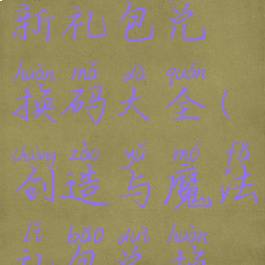 新礼包兑
huàn mǎ dà quán
换码大全(
chuàng zào yǔ mó fǎ
创造与魔法
lǐ bāo duì huàn
礼包兑换